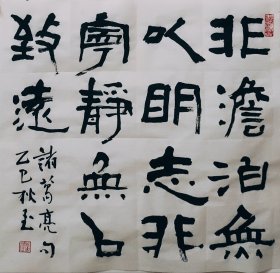 非澹泊無
以明志非
寧靜無以
致遠
諸葛亮句
乙巳秋